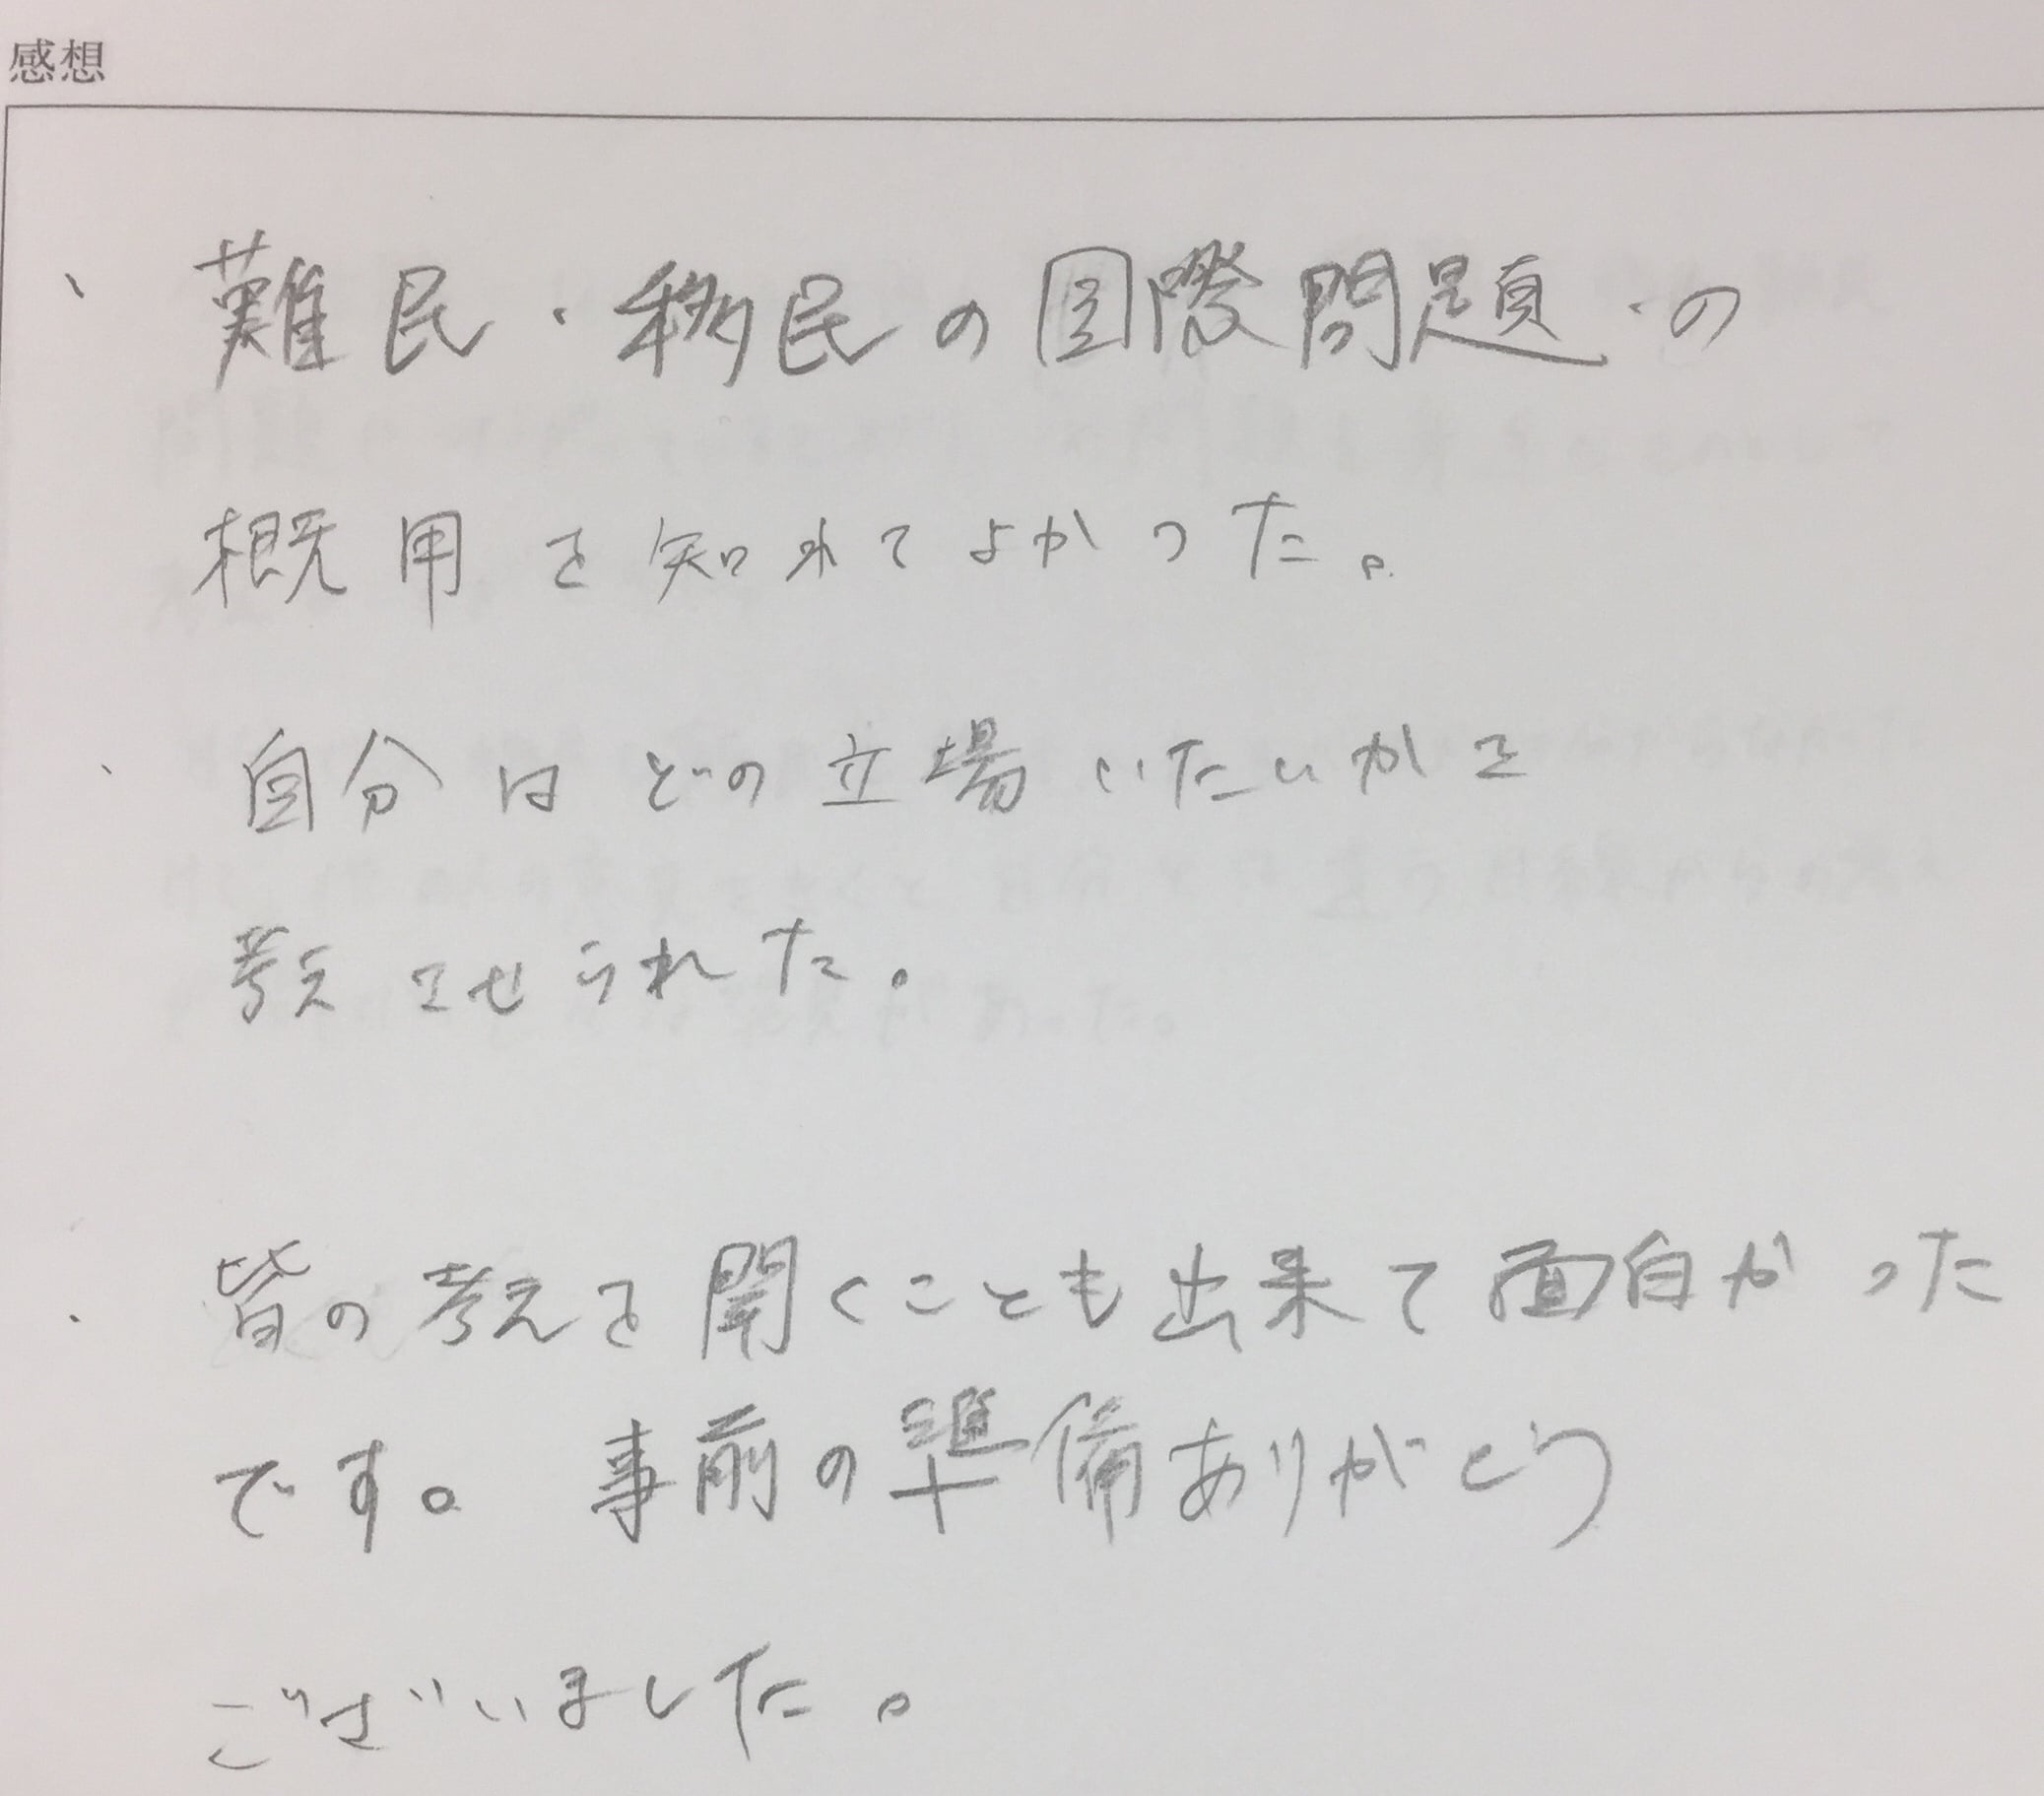 感想
、難民・移民の国際問題・の
概用を知れてよかった。
、自分はどの立場いたいかを
考えさせられた。
・皆の考えを聞くことも出来て面白かった
です。事前の準備ありがとう
ございました。